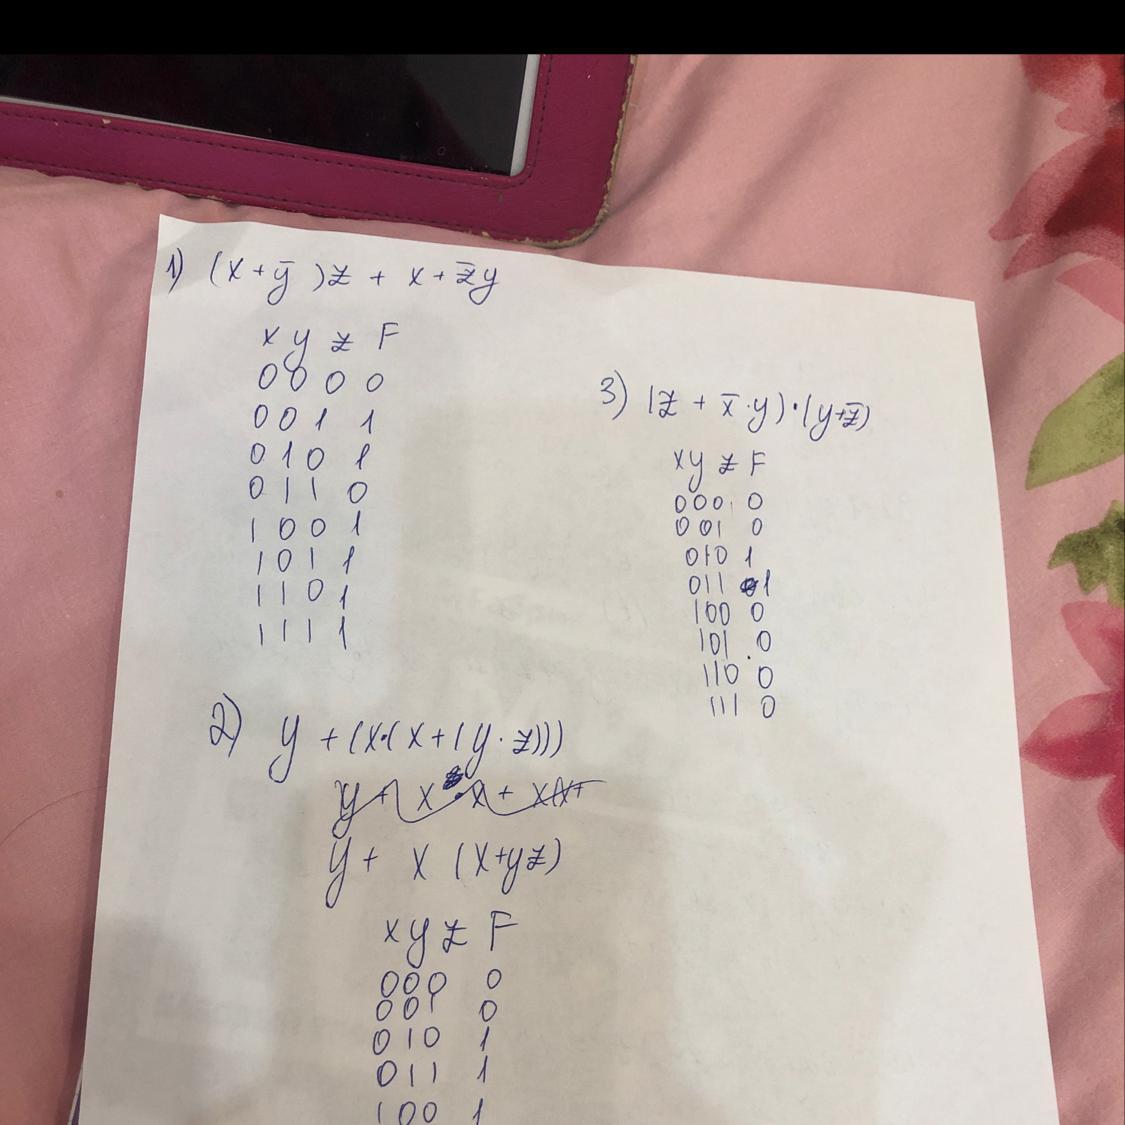 1) (x+ȳ)z + x+z̄y
x y z F
0 0 0 0
0 0 1 1
0 1 0 1
0 1 1 0
1 0 0 1
1 0 1 1
1 1 0 1
1 1 1 1
3) (z + x̄·y)·(y+z̄)
x y z F
0 0 0 0
0 0 1 0
0 1 0 1
0 1 1 1
1 0 0 0
1 0 1 0
1 1 0 0
1 1 1 0
2) y + (x·(x+(y·z)))
y+ x (x+yz)
x y z F
0 0 0 0
0 0 1 0
0 1 0 1
0 1 1 1
1 0 0 1